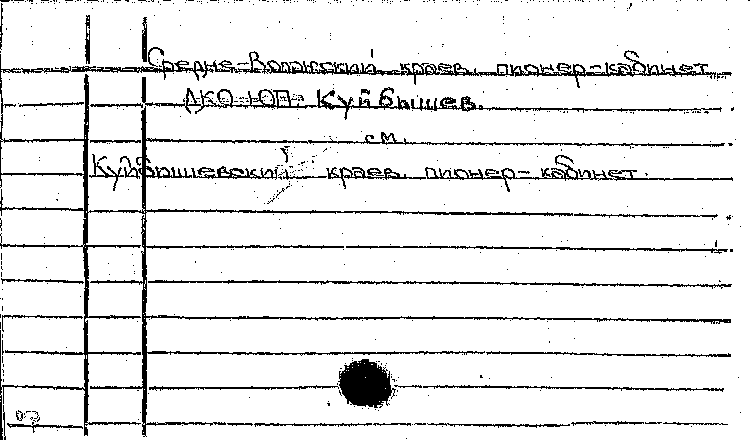 Средне-Волжский краев. пионер-кабинет
ДКО ЮП. Куйбышев.
см.
Куйбышевский краев. пионер-кабинет.